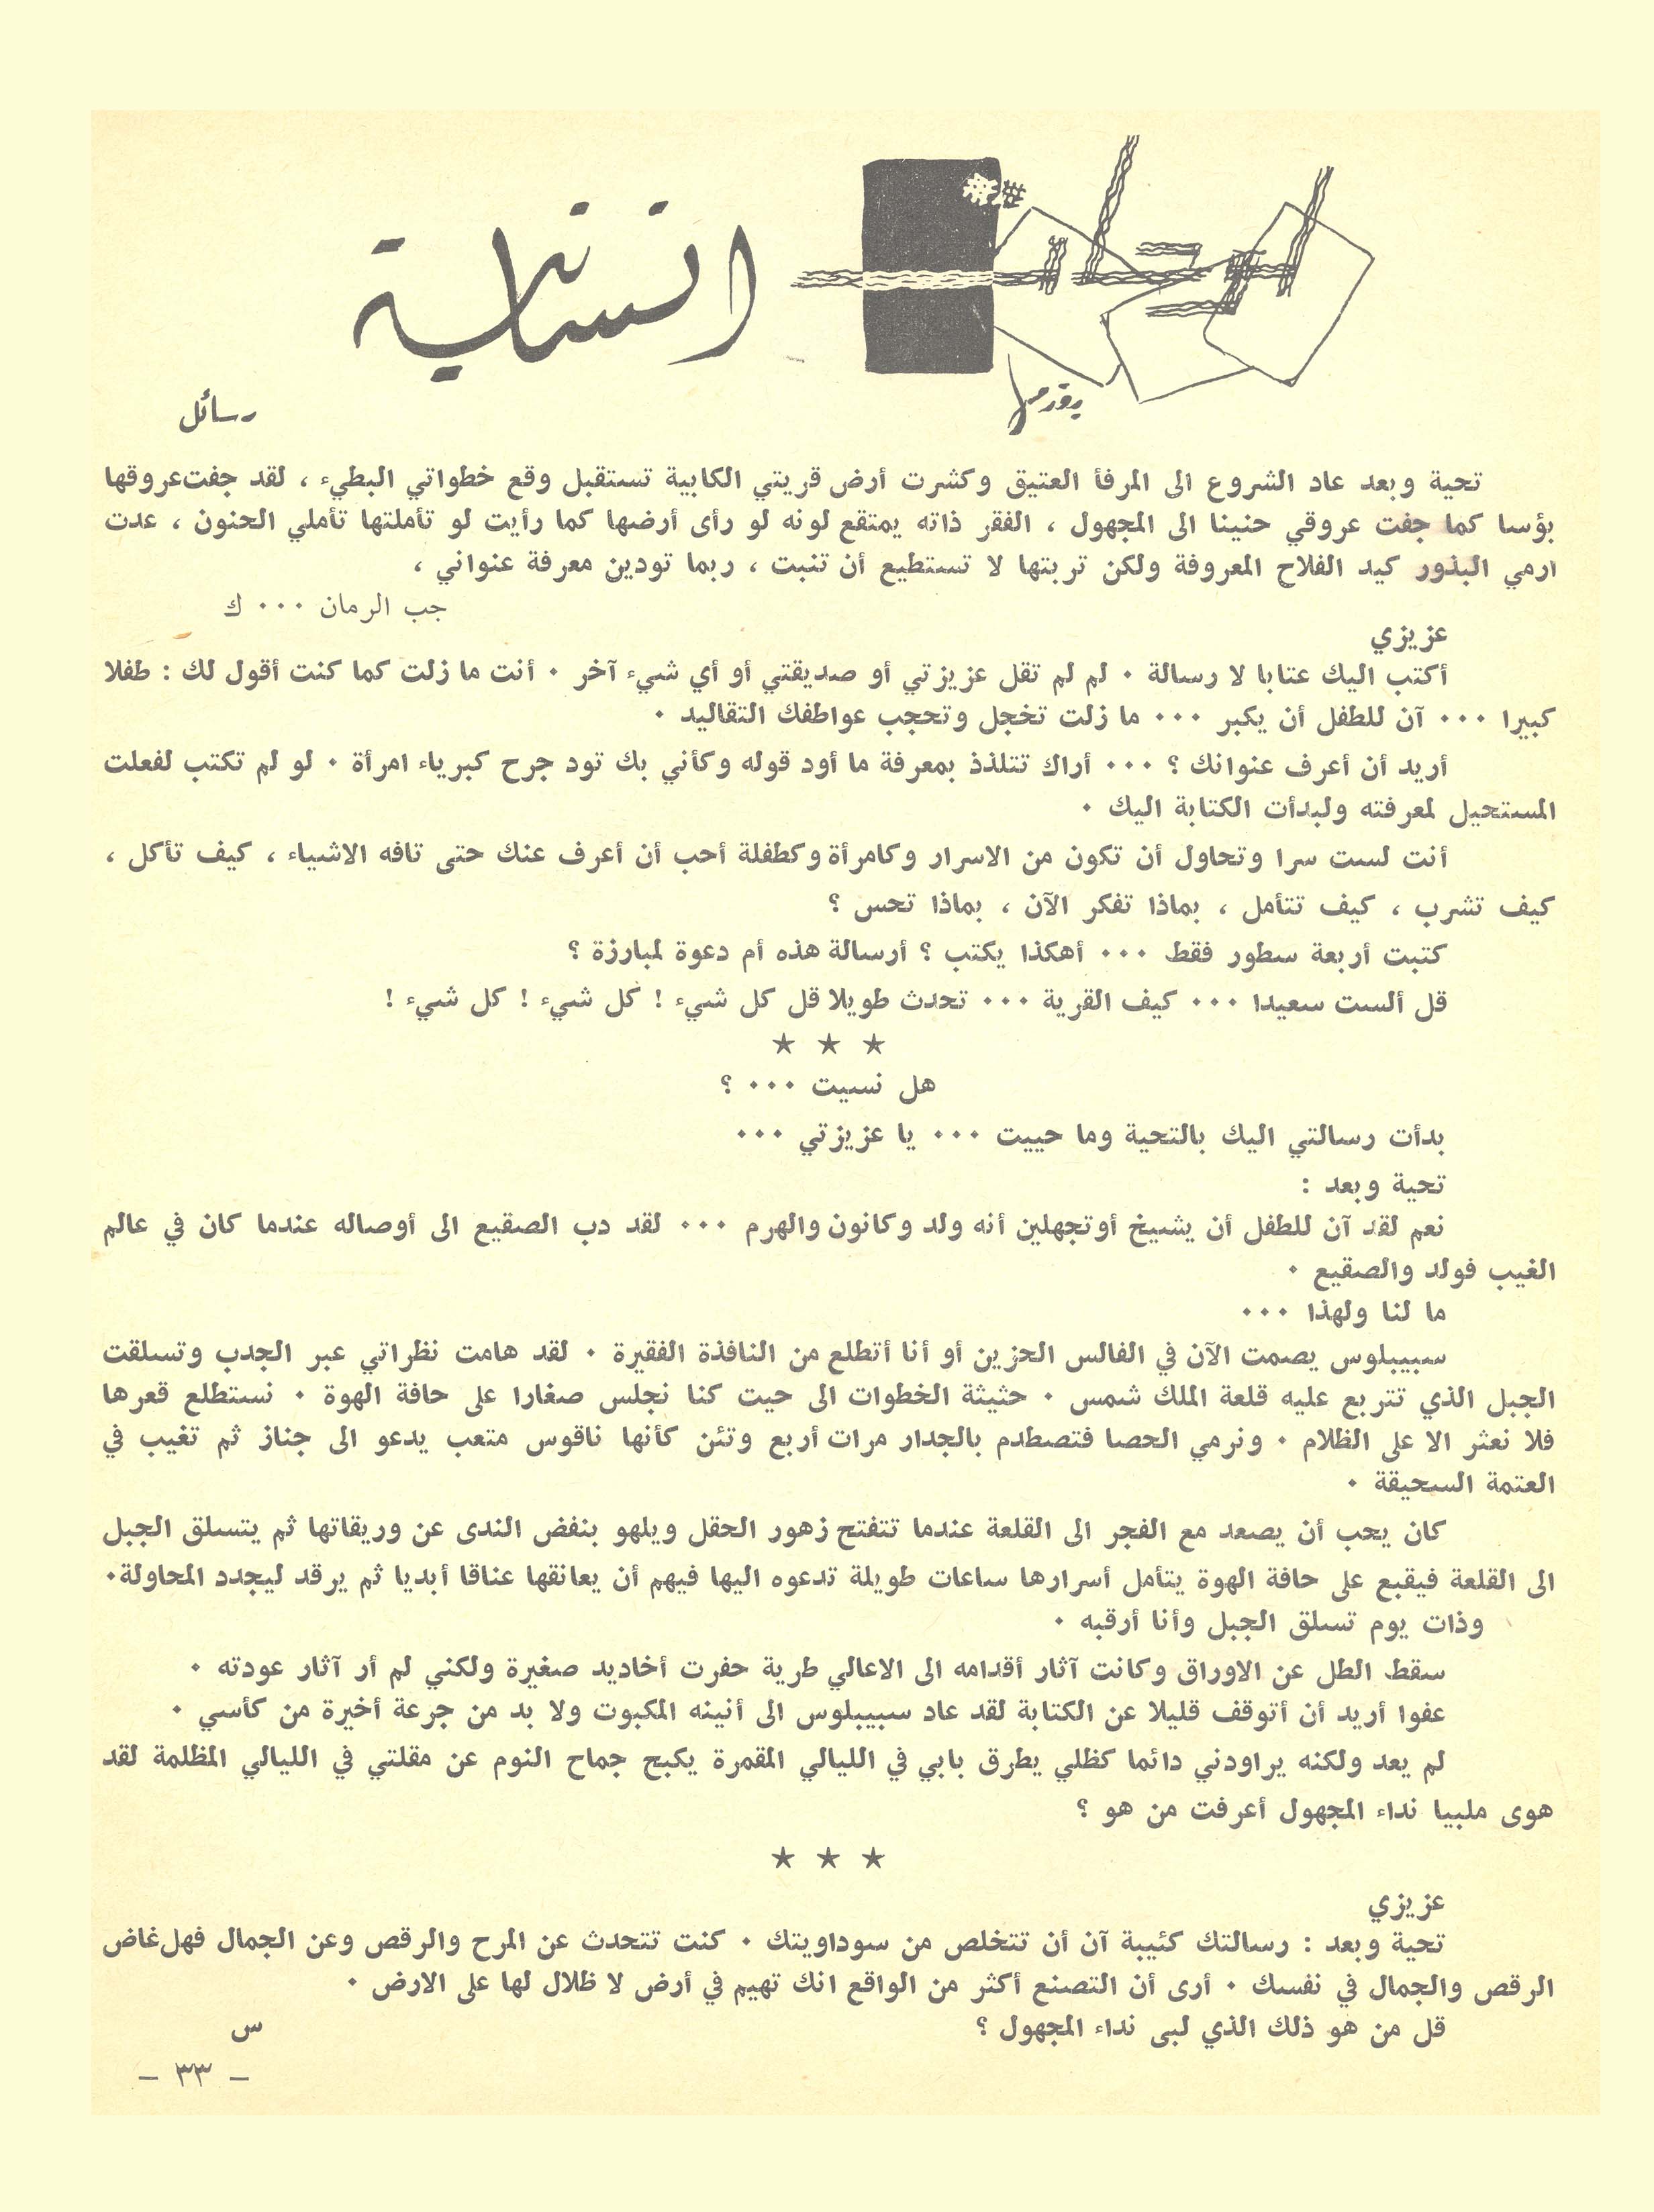 لوحات
انسانية
يقدمها
رسائل
تحية وبعد عاد الشروع الى المرفأ العتيق وكشرت أرض قريتي الكابية تستقبل وقع خطواتي البطيء ، لقد جفت عروقها
بؤسا كما جفت عروقي حنينا الى المجهول ، الفقر ذاته يمتقع لونه لو رأى أرضها كما رأيت لو تأملتها تأملي الحنون ، عدت
ارمي البذور كيد الفلاح المعروفة ولكن تربتها لا تستطيع أن تنبت ، ربما تودين معرفة عنواني ،
جب الرمان ٠٠٠ ك
عزيزي
أكتب اليك عتابا لا رسالة ٠ لم لم تقل عزيزتي أو صديقتي أو أي شيء آخر ٠ أنت ما زلت كما كنت أقول لك : طفلا
كبيرا ٠٠٠ آن للطفل أن يكبر ٠٠٠ ما زلت تخجل وتحجب عواطفك التقاليد ٠
أريد أن أعرف عنوانك ؟ ٠٠٠ أراك تتلذذ بمعرفة ما أود قوله وكأني بك تود جرح كبرياء امرأة ٠ لو لم تكتب لفعلت
المستحيل لمعرفته ولبدأت الكتابة اليك ٠
أنت لست سرا وتحاول أن تكون من الاسرار وكامرأة وكطفلة أحب أن أعرف عنك حتى تافه الاشياء ، كيف تأكل ،
كيف تشرب ، كيف تتأمل ، بماذا تفكر الآن ، بماذا تحس ؟
كتبت أربعة سطور فقط ٠٠٠ أهكذا يكتب ؟ أرسالة هذه أم دعوة لمبارزة ؟
قل ألست سعيدا ٠٠٠ كيف القرية ٠٠٠ تحدث طويلا قل كل شيء ! كل شيء ! كل شيء !
★ ★ ★
هل نسيت ٠٠٠ ؟
بدأت رسالتي اليك بالتحية وما حييت ٠٠٠ يا عزيزتي ٠٠٠
تحية وبعد :
نعم لقد آن للطفل أن يشيخ أوتجهلين أنه ولد وكانون والهرم ٠٠٠ لقد دب الصقيع الى أوصاله عندما كان في عالم
الغيب فولد والصقيع ٠
ما لنا ولهذا ٠٠٠
سبيبلوس يصمت الآن في الفالس الحزين أو أنا أتطلع من النافذة الفقيرة ٠ لقد هامت نظراتي عبر الجدب وتسلقت
الجبل الذي تتربع عليه قلعة الملك شمس ٠ حثيثة الخطوات الى حيت كنا نجلس صغارا على حافة الهوة ٠ نستطلع قعرها
فلا نعثر الا على الظلام ٠ ونرمي الحصا فتصطدم بالجدار مرات أربع وتئن كأنها ناقوس متعب يدعو الى جناز ثم تغيب في
العتمة السحيقة ٠
كان يحب أن يصعد مع الفجر الى القلعة عندما تتفتح زهور الحقل ويلهو بنفض الندى عن وريقاتها ثم يتسلق الجبل
الى القلعة فيقبع على حافة الهوة يتأمل أسرارها ساعات طويلة تدعوه اليها فيهم أن يعانقها عناقا أبديا ثم يرقد ليجدد المحاولة٠
وذات يوم تسلق الجبل وأنا أرقبه ٠
سقط الطل عن الاوراق وكانت آثار أقدامه الى الاعالي طرية حفرت أخاديد صغيرة ولكني لم أر آثار عودته ٠
عفوا أريد أن أتوقف قليلا عن الكتابة لقد عاد سبيبلوس الى أنينه المكبوت ولا بد من جرعة أخيرة من كأسي ٠
لم يعد ولكنه يراودني دائما كظلي يطرق بابي في الليالي المقمرة يكبح جماح النوم عن مقلتي في الليالي المظلمة لقد
هوى ملبيا نداء المجهول أعرفت من هو ؟
★ ★ ★
عزيزي
تحية وبعد : رسالتك كئيبة آن أن تتخلص من سوداويتك ٠ كنت تتحدث عن المرح والرقص وعن الجمال فهل غاض
الرقص والجمال في نفسك ٠ أرى أن التصنع أكثر من الواقع انك تهيم في أرض لا ظلال لها على الارض ٠
قل من هو ذلك الذي لبى نداء المجهول ؟
س
– ٣٣ –